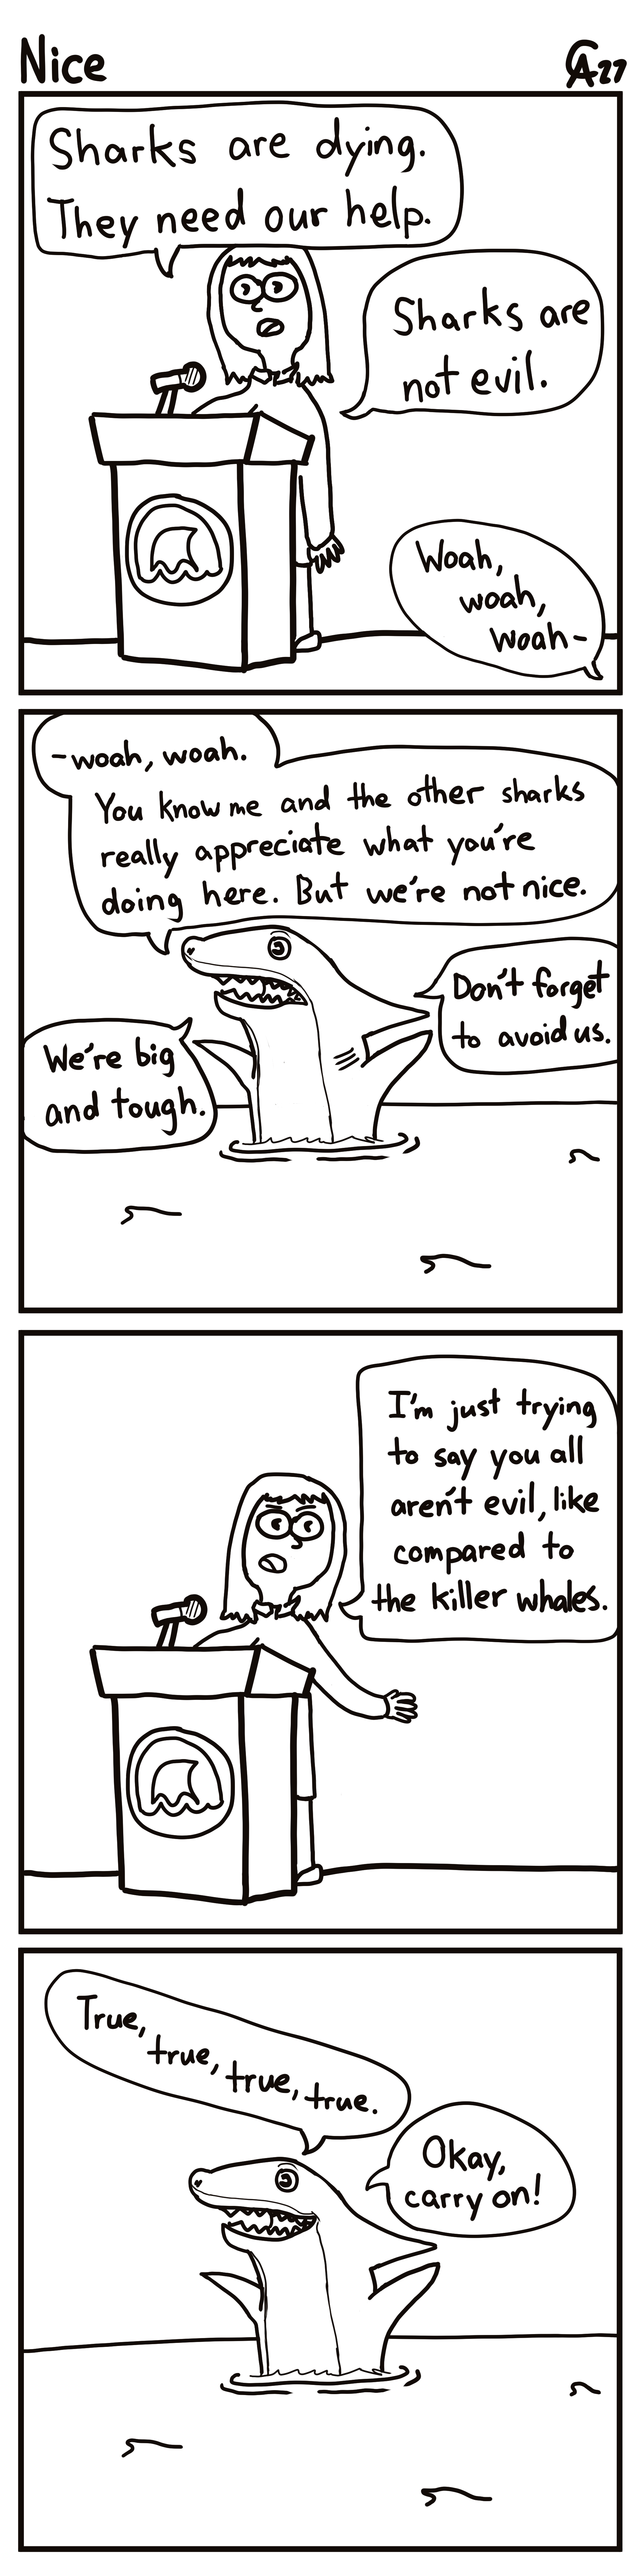 Nice
CA27
Sharks are dying.
They need our help.
Sharks are
not evil.
Woah,
woah,
woah-
-woah, woah.
You know me and the other sharks
really appreciate what you're
doing here. But we're not nice.
Don't forget
to avoid us.
We're big
and tough.
I'm just trying
to say you all
aren't evil, like
compared to
the killer whales.
True,
true,
true,
true.
Okay,
carry on!